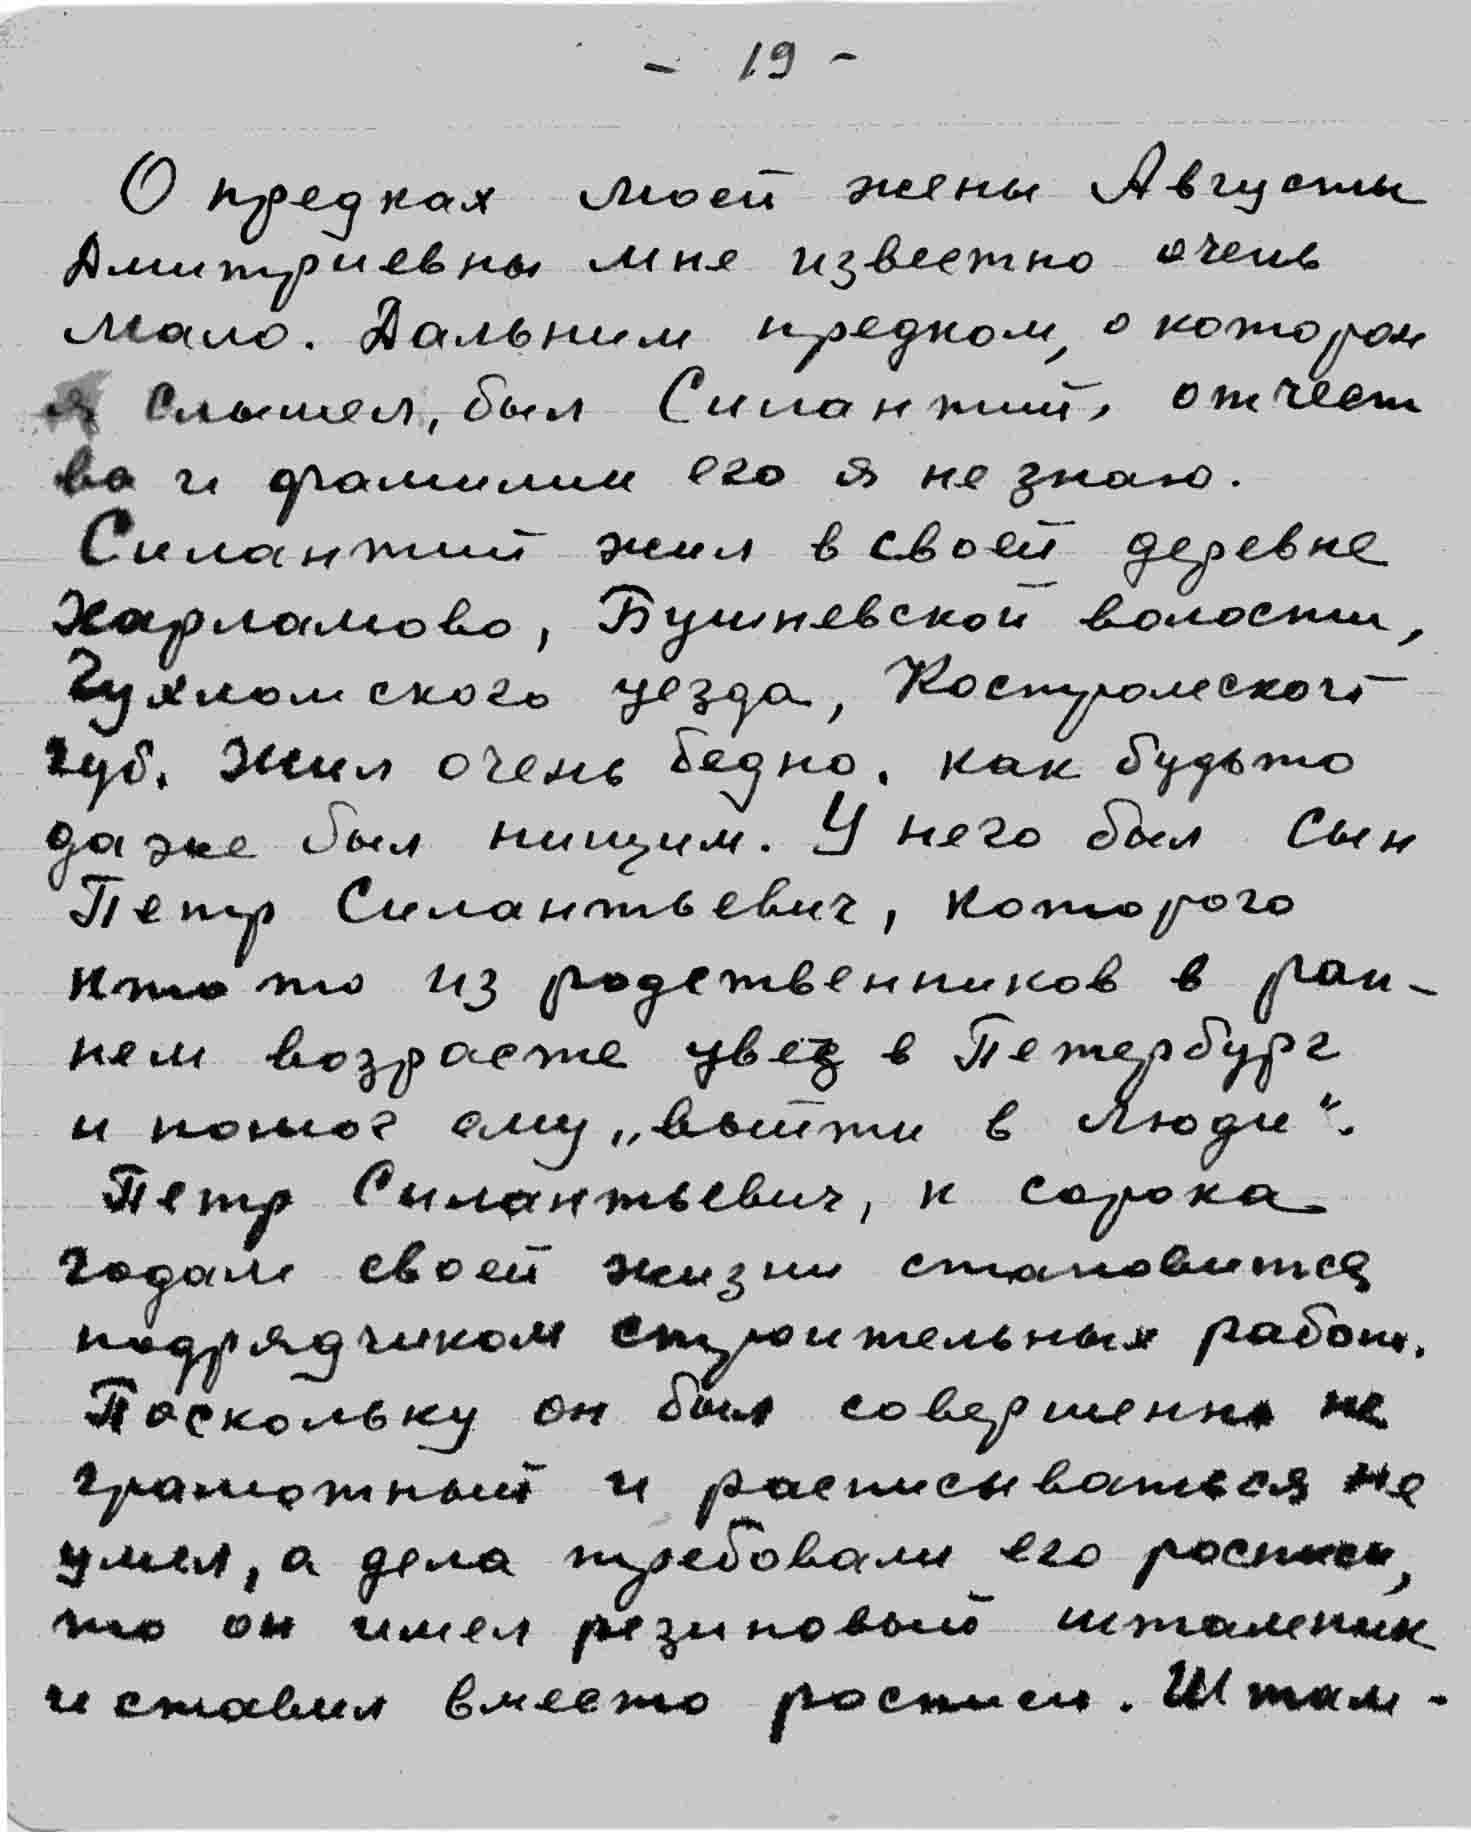 - 19 -
О предках моей жены Августы
Дмитриевны мне известно очень
мало. Дальним предком, о котором
я слышел, был Силантий, отчест
ва и фамилии его я не знаю.
Силантий жил в своей деревне
Харламово, Бушневской волости,
Чухломского уезда, Костромской
губ. Жил очень бедно, как будьто
даже был нищим. У него был сын
Петр Силантьевич, которого
кто то из родственников в ран-
нем возрасте увез в Петербург
и помог ему „выйти в люди“.
Петр Силантьевич, к сорока
годам своей жизни становится
подрядчиком строительных работ.
Поскольку он был совершенно не
грамотный и расписываться не
умел, а дела требовали его росписи,
то он имел резиновый штампик
и ставил вместо росписи. Штам-